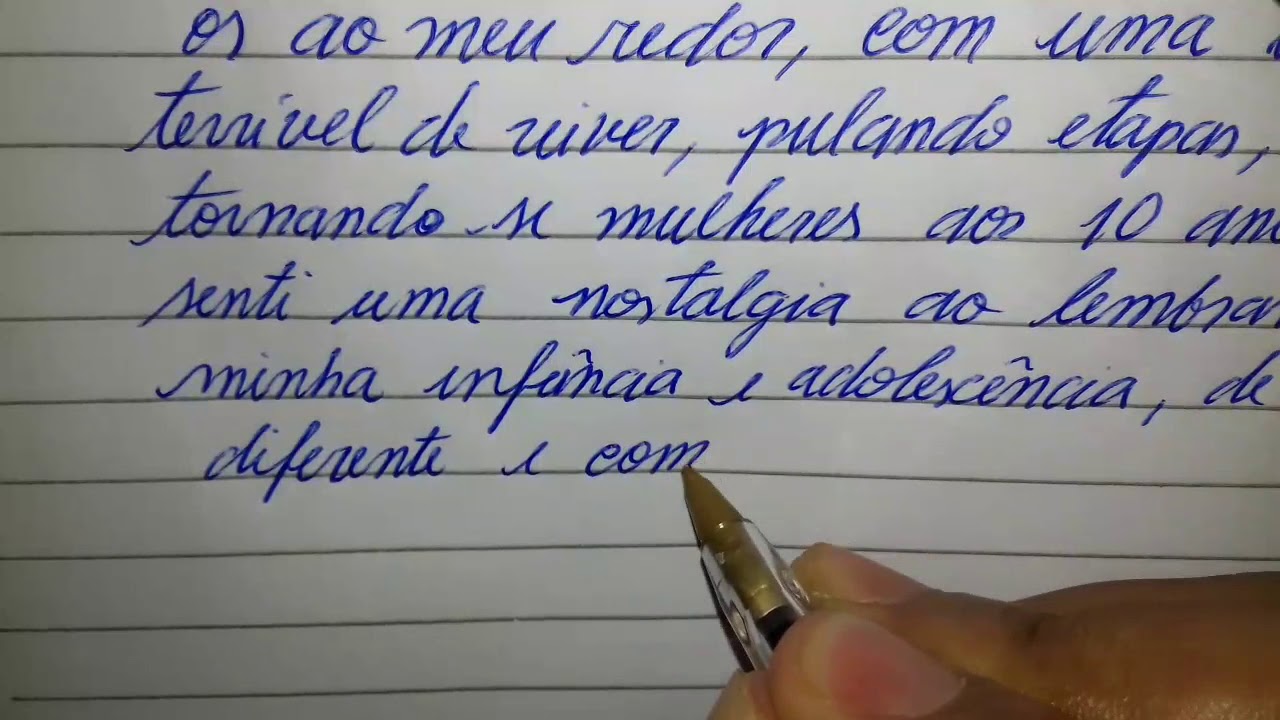 os ao meu redor, com uma
terrível de viver, pulando etapas,
tornando se mulheres aos 10 an
senti uma nostalgia ao lembra
minha infância e adolescência, de
diferente e com